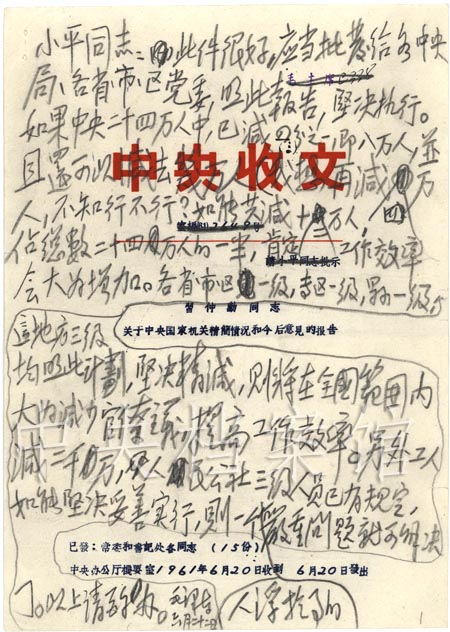 小平同志：此件很好，应当批发给各中央
局、各省市区党委，照此报告，坚决执行。
如果中央二十四万人中，已减四分之一即八万人，並
且還可以减去
再减
万
中央收文
人，不知行不行？如能共减十
万人，
佔總数二十四万人的一半，肯定
工作效率
請小平同志批示
会大为增加。各省市区一级，专区一级，县一级，
習仲勳同志
关于中央国家机关精簡情况和今后意見的报告
這地方三级
均照此计劃，坚决精减，则将在全國範囲内
大为减少官僚主義，提高工作效率。另外工人
减二千万，
人民公社三级人员已有规定，
如能坚决妥善实行，则一个
嚴重問题就可解决
已發：常委和書記处各同志（15份）
中央办公厅機要室1961年6月20日收到 6月20日發出
了。以上请
毛泽东
六月二十二日
人浮於事的
中央档案馆